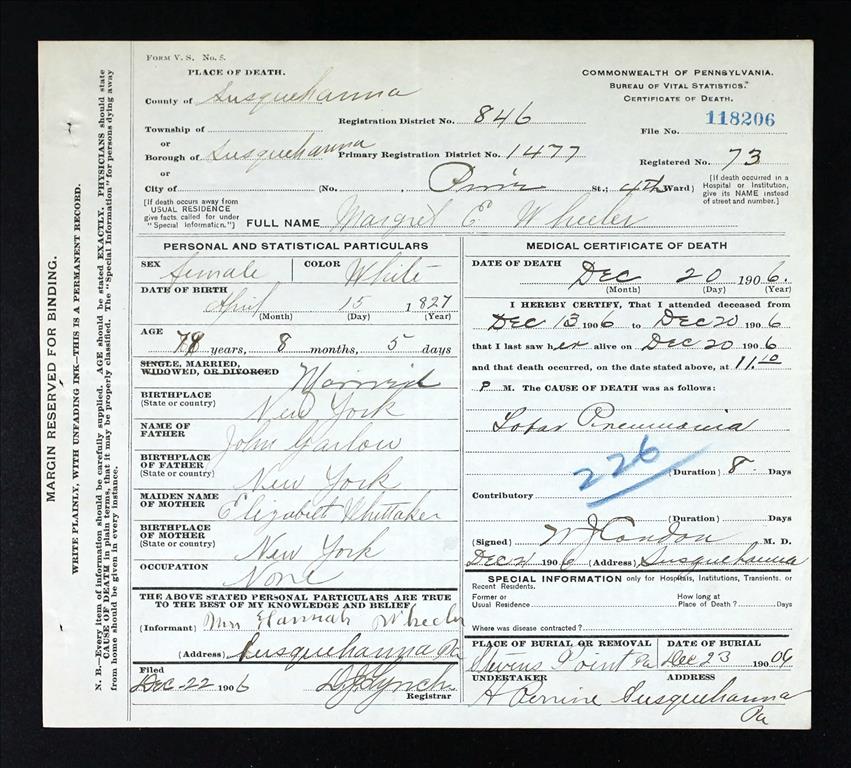 FORM V. S. No. 5.
PLACE OF DEATH.
County of Susquehanna
Township of
or
Borough of Susquehanna
or
City of
[If death occurs away from
USUAL RESIDENCE
give facts called for under
"Special Information."]
Registration District No. 846
Primary Registration District No. 1477
(No. , St.; 4th Ward)
COMMONWEALTH OF PENNSYLVANIA.
BUREAU OF VITAL STATISTICS.
CERTIFICATE OF DEATH.
File No. 118206
Registered No. 73
[If death occurred in a
Hospital or Institution,
give its NAME instead
of street and number.]
FULL NAME Margret E Wheeler
PERSONAL AND STATISTICAL PARTICULARS
SEX female COLOR White
DATE OF BIRTH
April 15 1827
(Month) (Day) (Year)
AGE
79 years, 8 months, 5 days
SINGLE, MARRIED,
WIDOWED, OR DIVORCED Married
BIRTHPLACE
(State or country) New York
NAME OF
FATHER John Garlow
BIRTHPLACE
OF FATHER
(State or country) New York
MAIDEN NAME
OF MOTHER Elizabeth Whittaker
BIRTHPLACE
OF MOTHER
(State or country) New York
OCCUPATION None
THE ABOVE STATED PERSONAL PARTICULARS ARE TRUE
TO THE BEST OF MY KNOWLEDGE AND BELIEF
(Informant) Mrs Hannah Wheeler
(Address) Susquehanna Pa
Filed
Dec-22 1906 D.J. Lynch
Registrar
MEDICAL CERTIFICATE OF DEATH
DATE OF DEATH
Dec 20 1906.
(Month) (Day) (Year)
I HEREBY CERTIFY, That I attended deceased from
Dec 13 1906 to Dec 20 1906
that I last saw her alive on Dec 20 1906
and that death occurred, on the date stated above, at 11.10
P M. The CAUSE OF DEATH was as follows:
Lobar Pneumonia
226
(Duration) 8 Days
Contributory
(Duration) Days
(Signed) W J Condon M. D.
Dec 21 1906 (Address) Susquehanna
SPECIAL INFORMATION only for Hospitals, Institutions, Transients, or
Recent Residents.
Former or
Usual Residence
How long at
Place of Death? Days
Where was disease contracted?
PLACE OF BURIAL OR REMOVAL
Stevens Point Pa
DATE OF BURIAL
Dec 23 1906
UNDERTAKER
ADDRESS
H Perrine Susquehanna
Pa
MARGIN RESERVED FOR BINDING.
WRITE PLAINLY, WITH UNFADING INK—THIS IS A PERMANENT RECORD.
N. B.—Every item of information should be carefully supplied. AGE should be stated EXACTLY. PHYSICIANS should state
CAUSE OF DEATH in plain terms, that it may be properly classified. The "Special Information" for persons dying away
from home should be given in every instance.